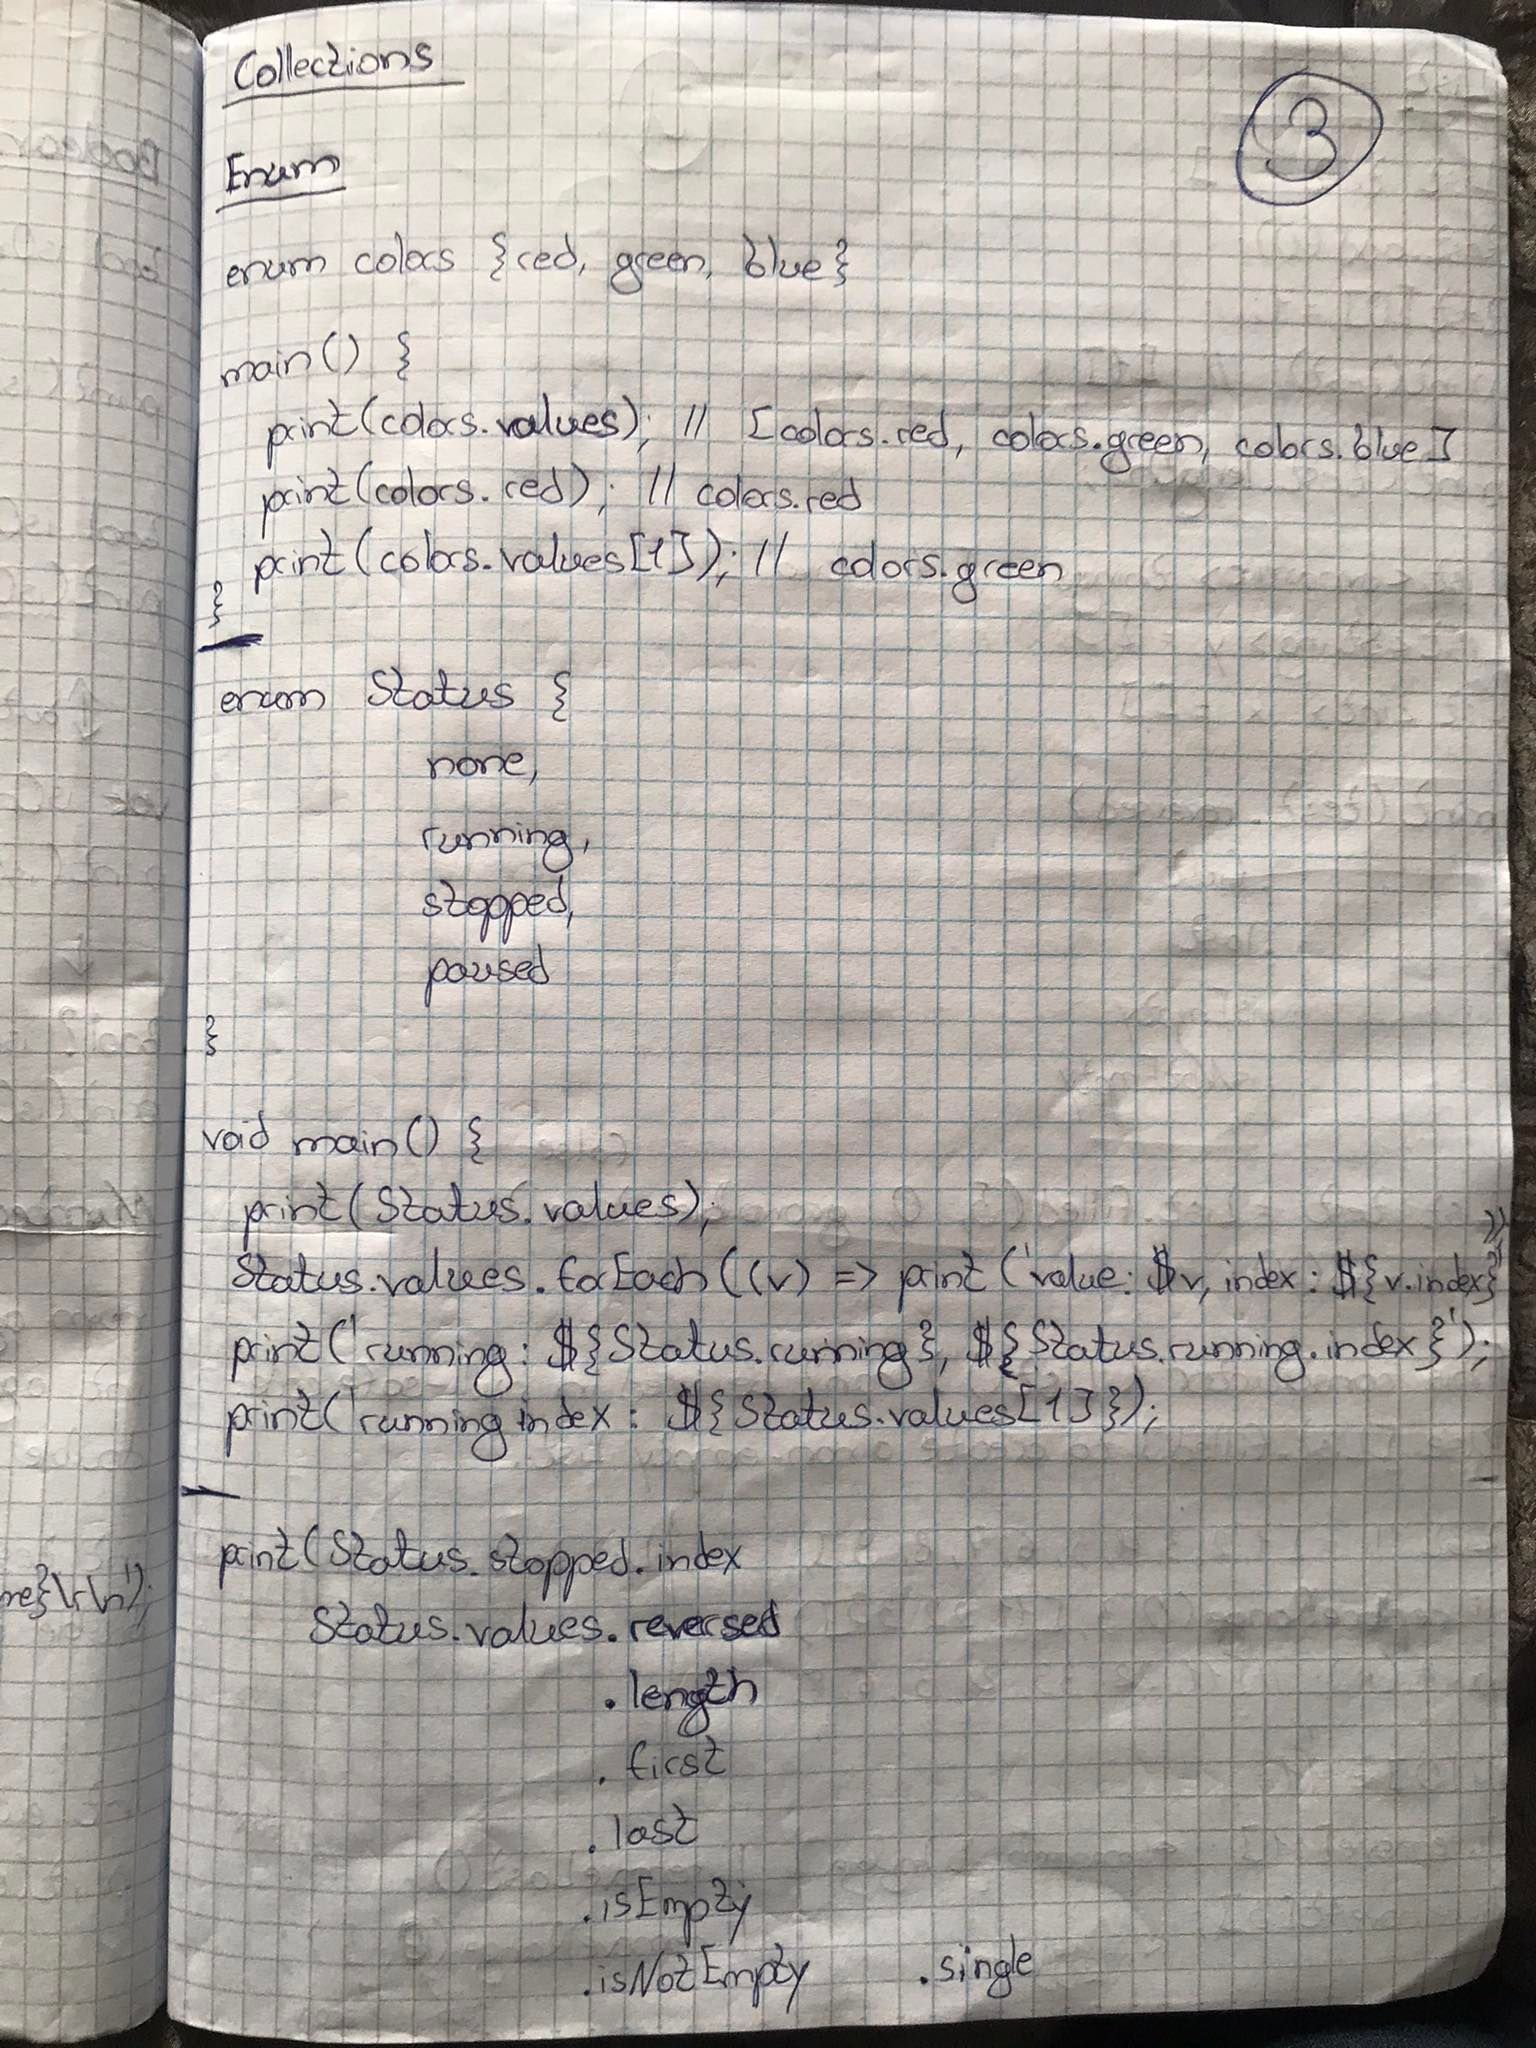 Collections
3
Enum
enum colors {red, green, blue}
main() {
print(colors.values); // [colors.red, colors.green, colors.blue]
print(colors.red); // colors.red
print(colors.values[1]); // colors.green
}
enum Status {
none,
running,
stopped,
paused
}
void main() {
print(Status.values);
Status.values.forEach((v) => print('value: $v, index: ${v.index}'));
print('running: ${Status.running}, ${Status.running.index}');
print('running index: ${Status.values[1]});
print(Status.stopped.index
Status.values.reversed
.length
.first
.last
.isEmpty
.isNotEmpty .single
me}\r\n');